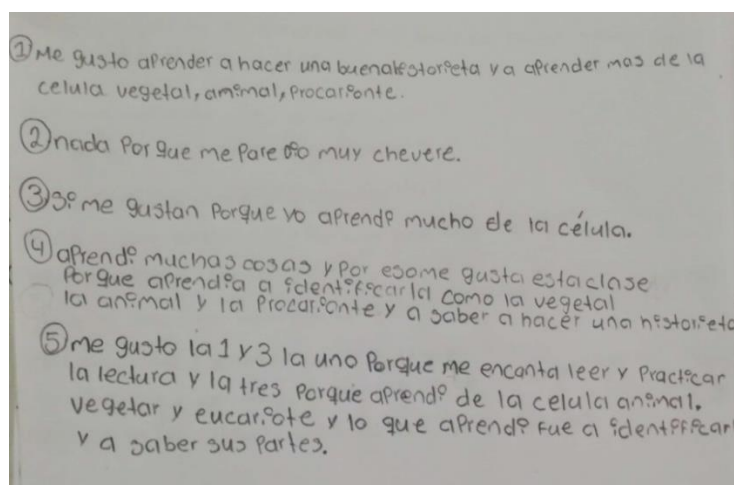 ① Me gusto aprender a hacer una buena historieta y a aprender mas de la
celula vegetal, animal, procarionte.
② nada porque me parecio muy chevere.
③ si me gustan porque yo aprendi mucho de la célula.
④ aprendi muchas cosas y por eso me gusta esta clase
porque aprendi a a identificarla como la vegetal
la animal y la procarionte y a saber a hacer una historieta
⑤ me gusto la 1 y 3 la uno porque me encanta leer y practicar
la lectura y la tres porque aprendi de la celula animal.
vegetar y eucariote y lo que aprendi fue a identificar
y a saber sus partes.